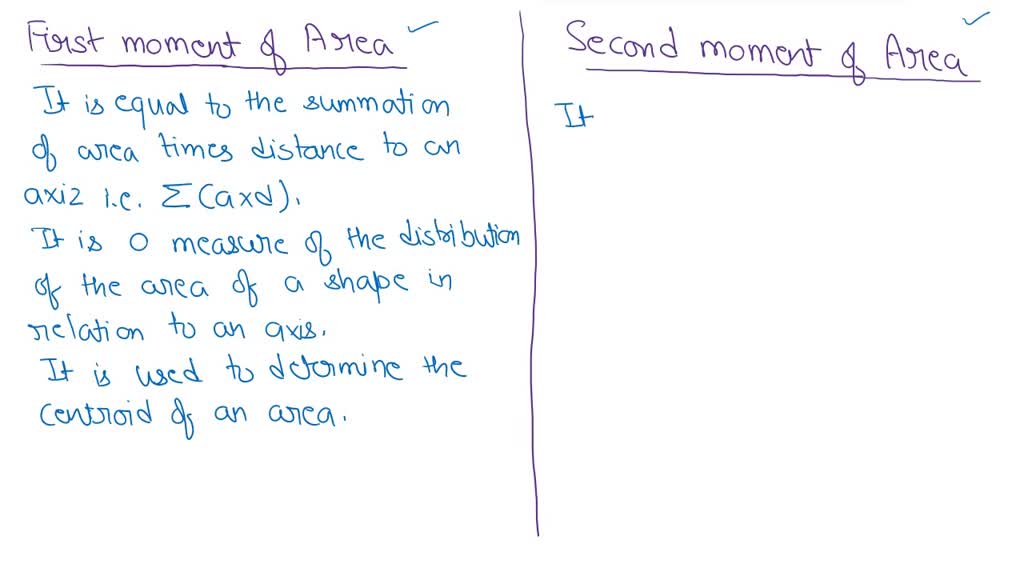 First moment of Area
It is equal to the summation
of area times distance to an
axiz i.e. Σ(a×d).
It is O measure of the distribution
of the area of a shape in
relation to an axis.
It is used to determine the
centroid of an area.
Second moment of Area
It